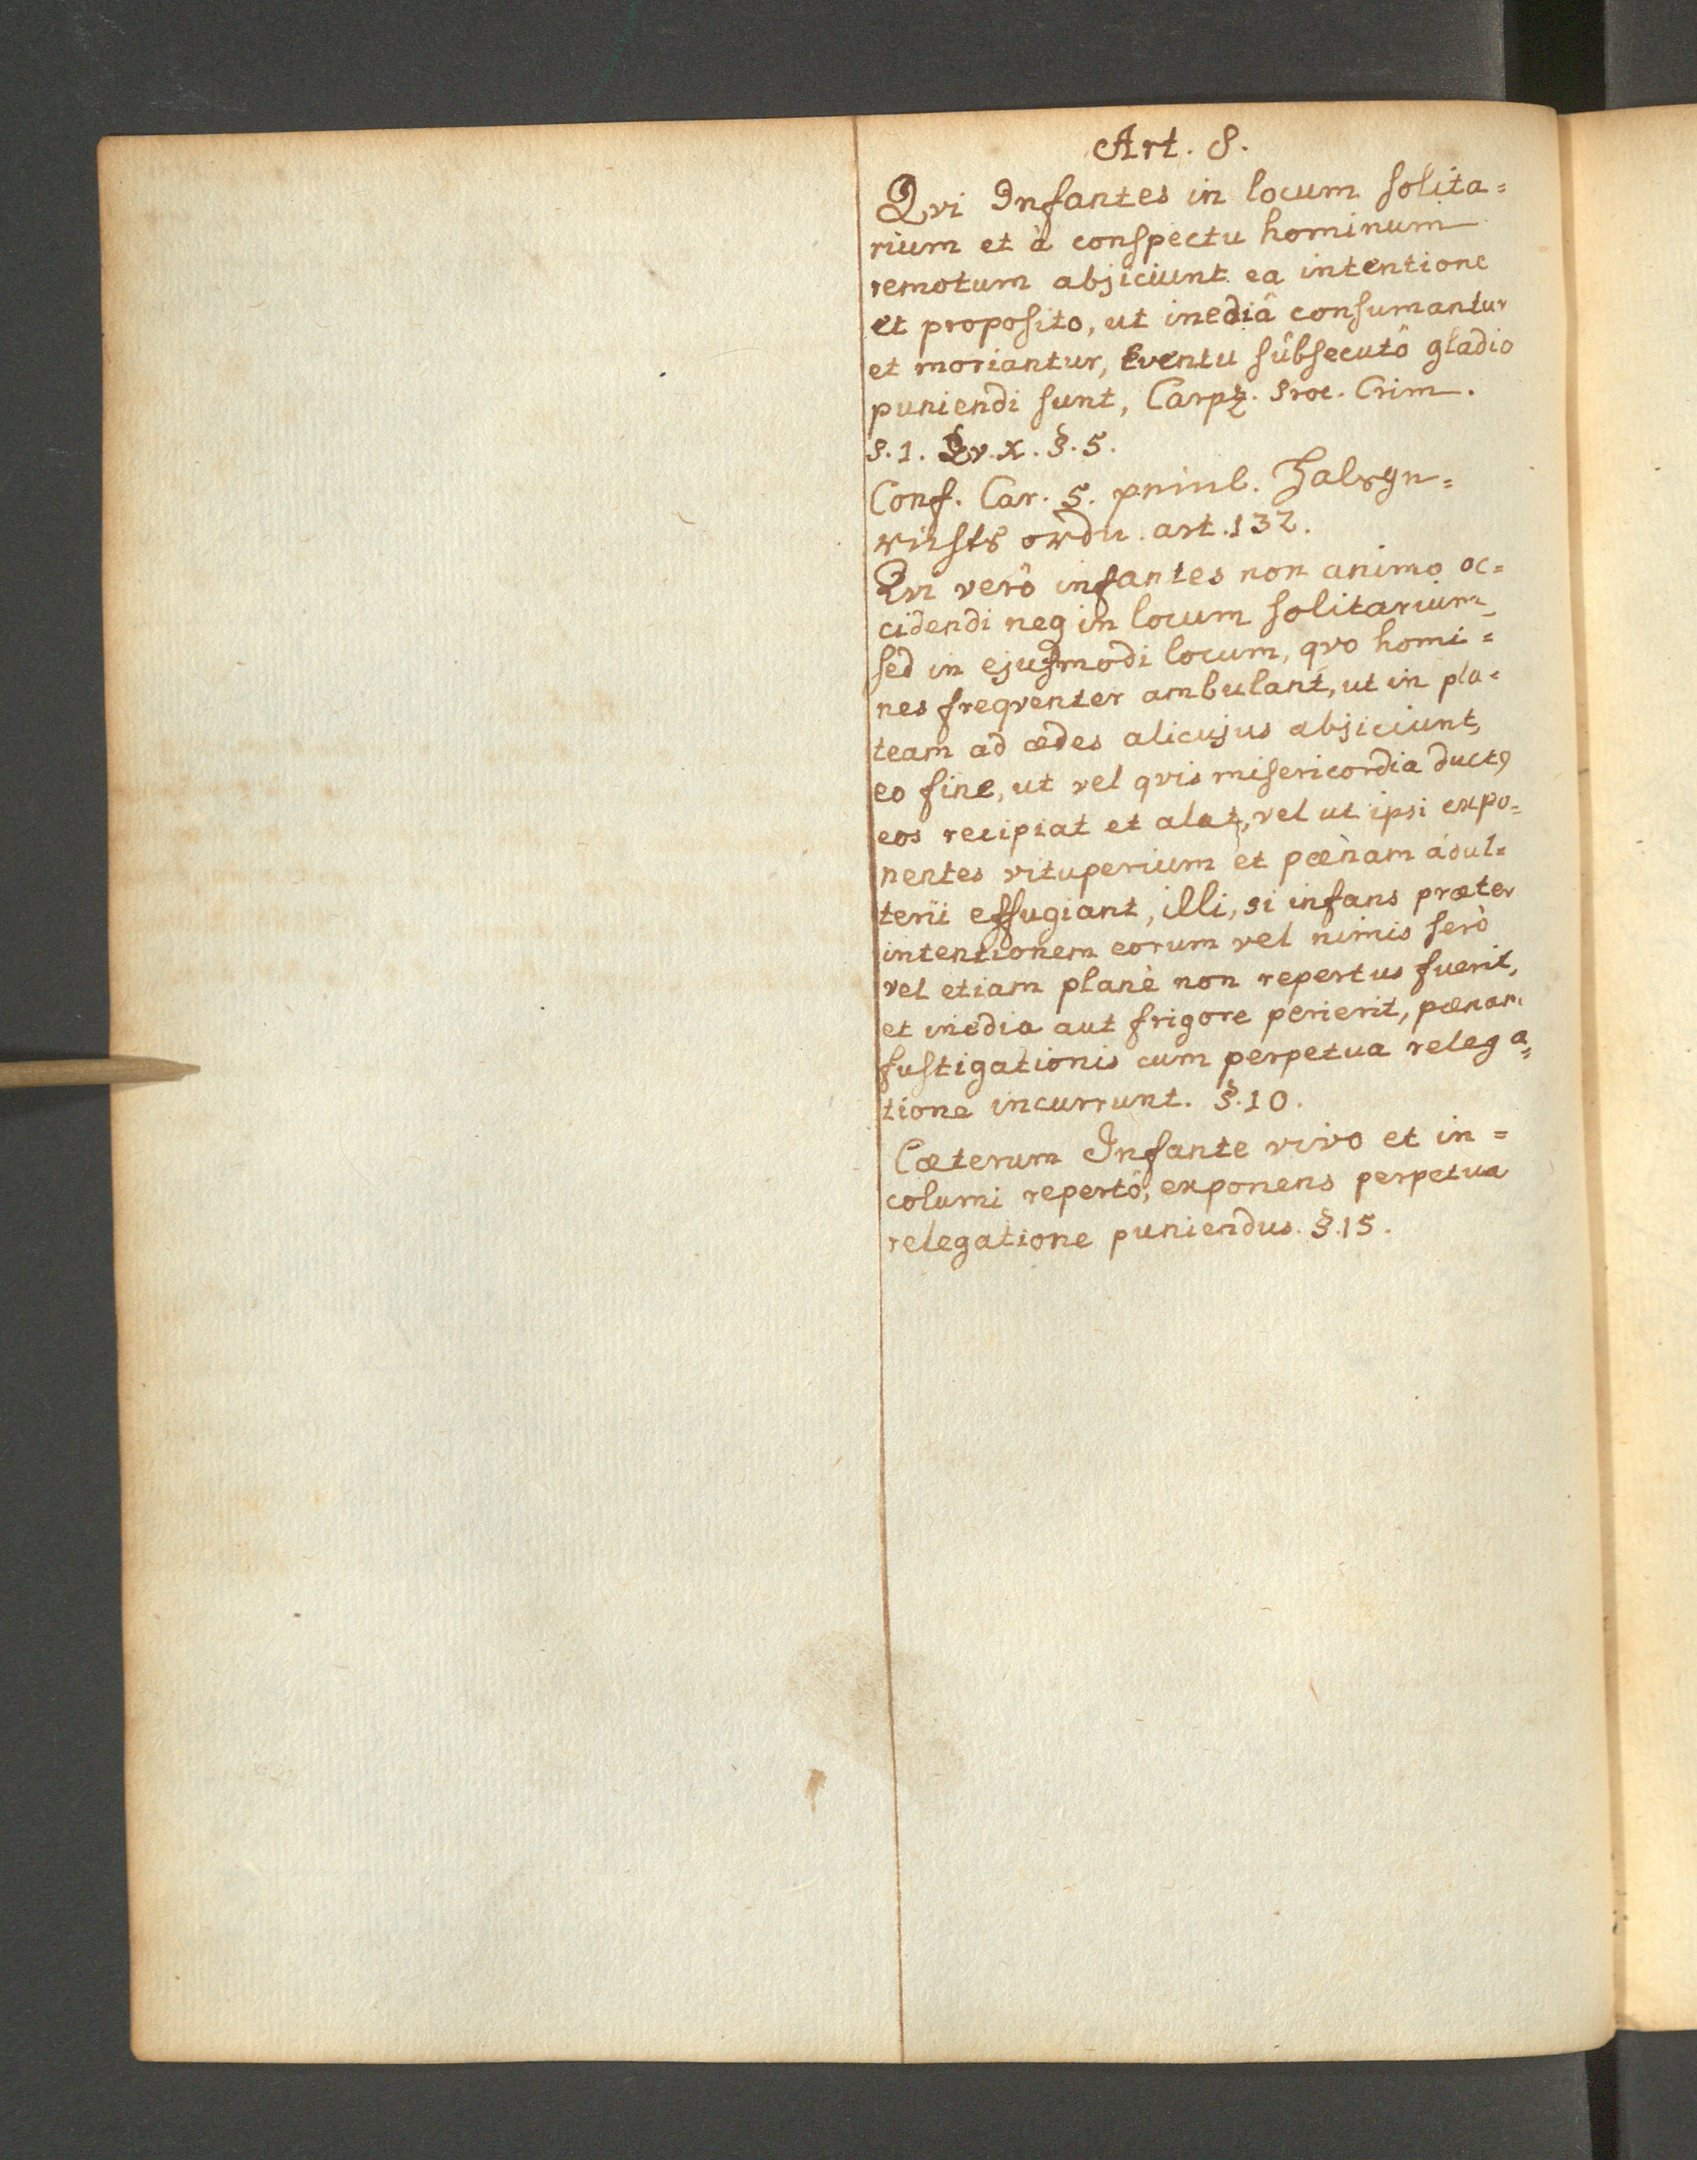 Art. 8.
Qvi Infantes in locum solita=
rium et à conspectu hominum
remotum abjiciunt ea intentione
et proposito, ut inediâ consumantur
et moriantur, Eventu subsecutô gladio
puniendi sunt, Carpz. Proc. Crim.
P. 1. Qv. X. §. 5.
Conf. Car. 5. peinl. Halsge=
richts ordn. art. 132.
Qvi verô infantes non animo oc=
cidendi neq in locum solitarium
sed in ejusmodi locum, qvo homi=
nes freqventer ambulant, ut in pla=
team ad ædes alicujus abjiciunt,
eo fine, ut vel qvis misericordia duct9
eos recipiat et alat, vel ut ipsi expo=
nentes vituperium et pœnam adul=
terii effugiant, illi, si infans præter
intentionem eorum vel nimis serò
vel etiam planè non repertus fuerit,
et inedia aut frigore perierit, pœnam
fustigationis cum perpetua relega=
tione incurrunt. §. 10.
Cæterum Infante vivo et in=
columi repertô, exponens perpetua
relegatione puniendus. §. 15.